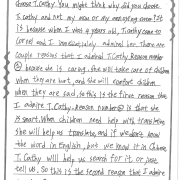 choose T. Cathy. You might think why did you choose
T. Cathy and not my mom or my
is because when I was 4 years old, T. Cathy came to
and I immediately admired her. There are
couple reasons that I admired T. Cathy. Reason number
① because she is caring. She will take care of children
when they are hurt, and she will comfort children
when they are sad, so this is the first reason that
I admire T. Cathy. Reason number ② is that she
is smart. When children need help with translating
she will help us translate, and if we don't know
the word in English, but we know it in Chinese
T. Cathy will help us search for it, or just
tell us. So this is the second reason that I admire